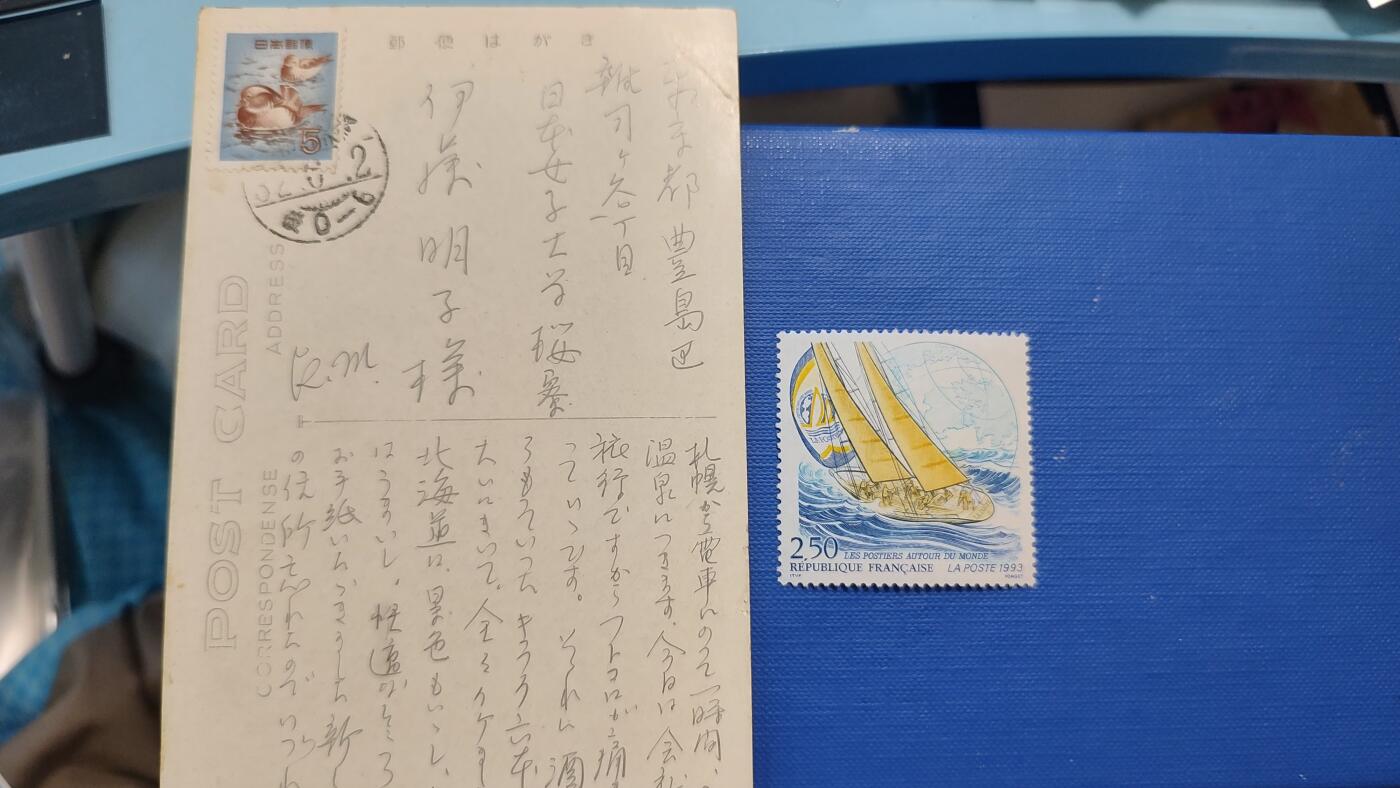 日本郵便
5
郵便はがき
東京都豊島区
雑司ヶ谷一丁目
日本女子大学桜寮
明子様
K.M.
2
0-6
POST CARD
ADDRESS
CORRESPONDENSE
札幌から電車にのって一時間、
温泉につきます。今日は会社
旅行ですからフトコロが痛
っています。それに酒
大いにきいて。全々
北海道は景色もいゝし、
はうまいし、快適なところ
お手紙いただきました新し
の住所忘れたのでいつ
2,50
LES POSTIERS AUTOUR DU MONDE
RÉPUBLIQUE FRANÇAISE
LA POSTE 1993
ITVF
FORGET
LA POSTE